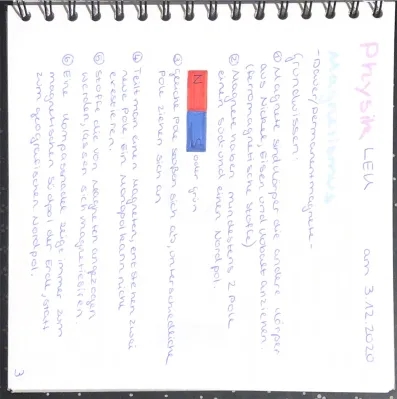 Physik LEU am 3.12.2020
Magnetismus
-Dauer/permanentmagnete-
Grundwissen:
① Magnete sind Körper die andere Körper
aus Nickel, Eisen und Kobalt anziehen.
(ferromagnetische Stoffe)
② Magnete haben mindestens 2 Pole
einen Süd und einen Nordpol.
N S oder grün
③ gleiche Pole stoßen sich ab, unterschiedliche
Pole ziehen sich an
④ Teilt man einen Magneten, entstehen zwei
neue Pole ein Monopol kann nicht
existieren.
⑤ Stoffe die von Magneten angezogen
werden, lassen sich magnetisieren.
⑥ Eine Kompassnadel zeigt immer zum
magnetischen Südpol der Erde, statt
zum geografischen Nordpol.
3